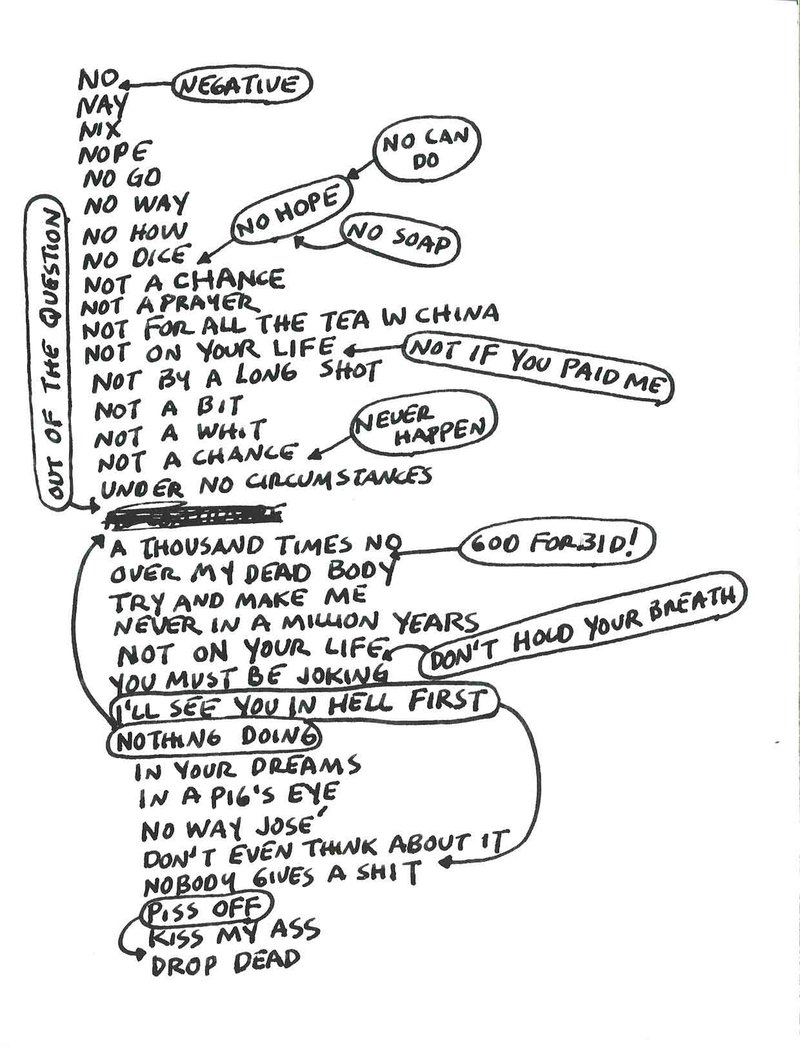 NO
NEGATIVE
NAY
NIX
NOPE
NO CAN
DO
NO GO
NO WAY
NO HOPE
NO HOW
NO SOAP
NO DICE
OUT OF THE QUESTION
NOT A CHANCE
NOT A PRAYER
NOT FOR ALL THE TEA IN CHINA
NOT ON YOUR LIFE
NOT IF YOU PAID ME
NOT BY A LONG SHOT
NOT A BIT
NOT A WHIT
NEVER
HAPPEN
NOT A CHANCE
UNDER NO CIRCUMSTANCES
A THOUSAND TIMES NO
GOD FORBID!
OVER MY DEAD BODY
TRY AND MAKE ME
NEVER IN A MILLION YEARS
NOT ON YOUR LIFE
DON'T HOLD YOUR BREATH
YOU MUST BE JOKING
I'LL SEE YOU IN HELL FIRST
NOTHING DOING
IN YOUR DREAMS
IN A PIG'S EYE
NO WAY JOSÉ
DON'T EVEN THINK ABOUT IT
NOBODY GIVES A SHIT
PISS OFF
KISS MY ASS
DROP DEAD